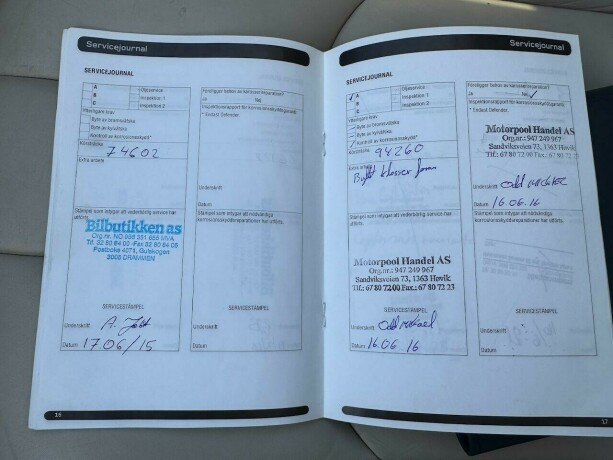 Servicejournal
SERVICEJOURNAL
A
B
C
Oljeservice
Inspektion 1
Inspektion 2
Ytterligare krav
Byte av bromsvätska
Byte av kylvätska
Kontroll av korrosionsskydd*
Körsträcka
74602
Extra arbete
Stämpel som intygar att vederbörlig service har
utförts.
Bilbutikken as
Org.nr. NO 986 351 655 MVA
Postboks 4071, Gulskogen
3005 DRAMMEN
SERVICESTÄMPEL
Underskrift
Datum 17 06/15
Föreligger behov av karosserireparation?
Ja
Nej
Inspektionsrapport för korrosionsskyddsgaranti
* Endast Defender.
Underskrift
Datum
Stämpel som intygar att nödvändiga
korrosionsskyddsreparationer har utförts.
SERVICESTÄMPEL
Underskrift
Datum
16
Servicejournal
SERVICEJOURNAL
A
B
C
Oljeservice
Inspektion 1
Inspektion 2
Ytterligare krav
Byte av bromsvätska
Byte av kylvätska
Kontroll av korrosionsskydd*
Körsträcka
98260
Extra arbete
Byttet klosser foran
Stämpel som intygar att vederbörlig service har
utförts.
Motorpool Handel AS
Org.nr.: 947 249 967
Sandviksveien 73, 1363 Høvik
Tlf.: 67 80 72 00 Fax.: 67 80 72 23
SERVICESTÄMPEL
Underskrift
Datum 16.06.16
Föreligger behov av karosserireparation?
Ja
Nej
Inspektionsrapport för korrosionsskyddsgaranti
* Endast Defender.
Motorpool Handel AS
Org.nr.: 947 249 967
Sandviksveien 73, 1363 Høvik
Tlf.: 67 80 72 00
Underskrift
Datum 16.06.16
Stämpel som intygar att nödvändiga
korrosionsskyddsreparationer har utförts.
SERVICESTÄMPEL
Underskrift
Datum
17